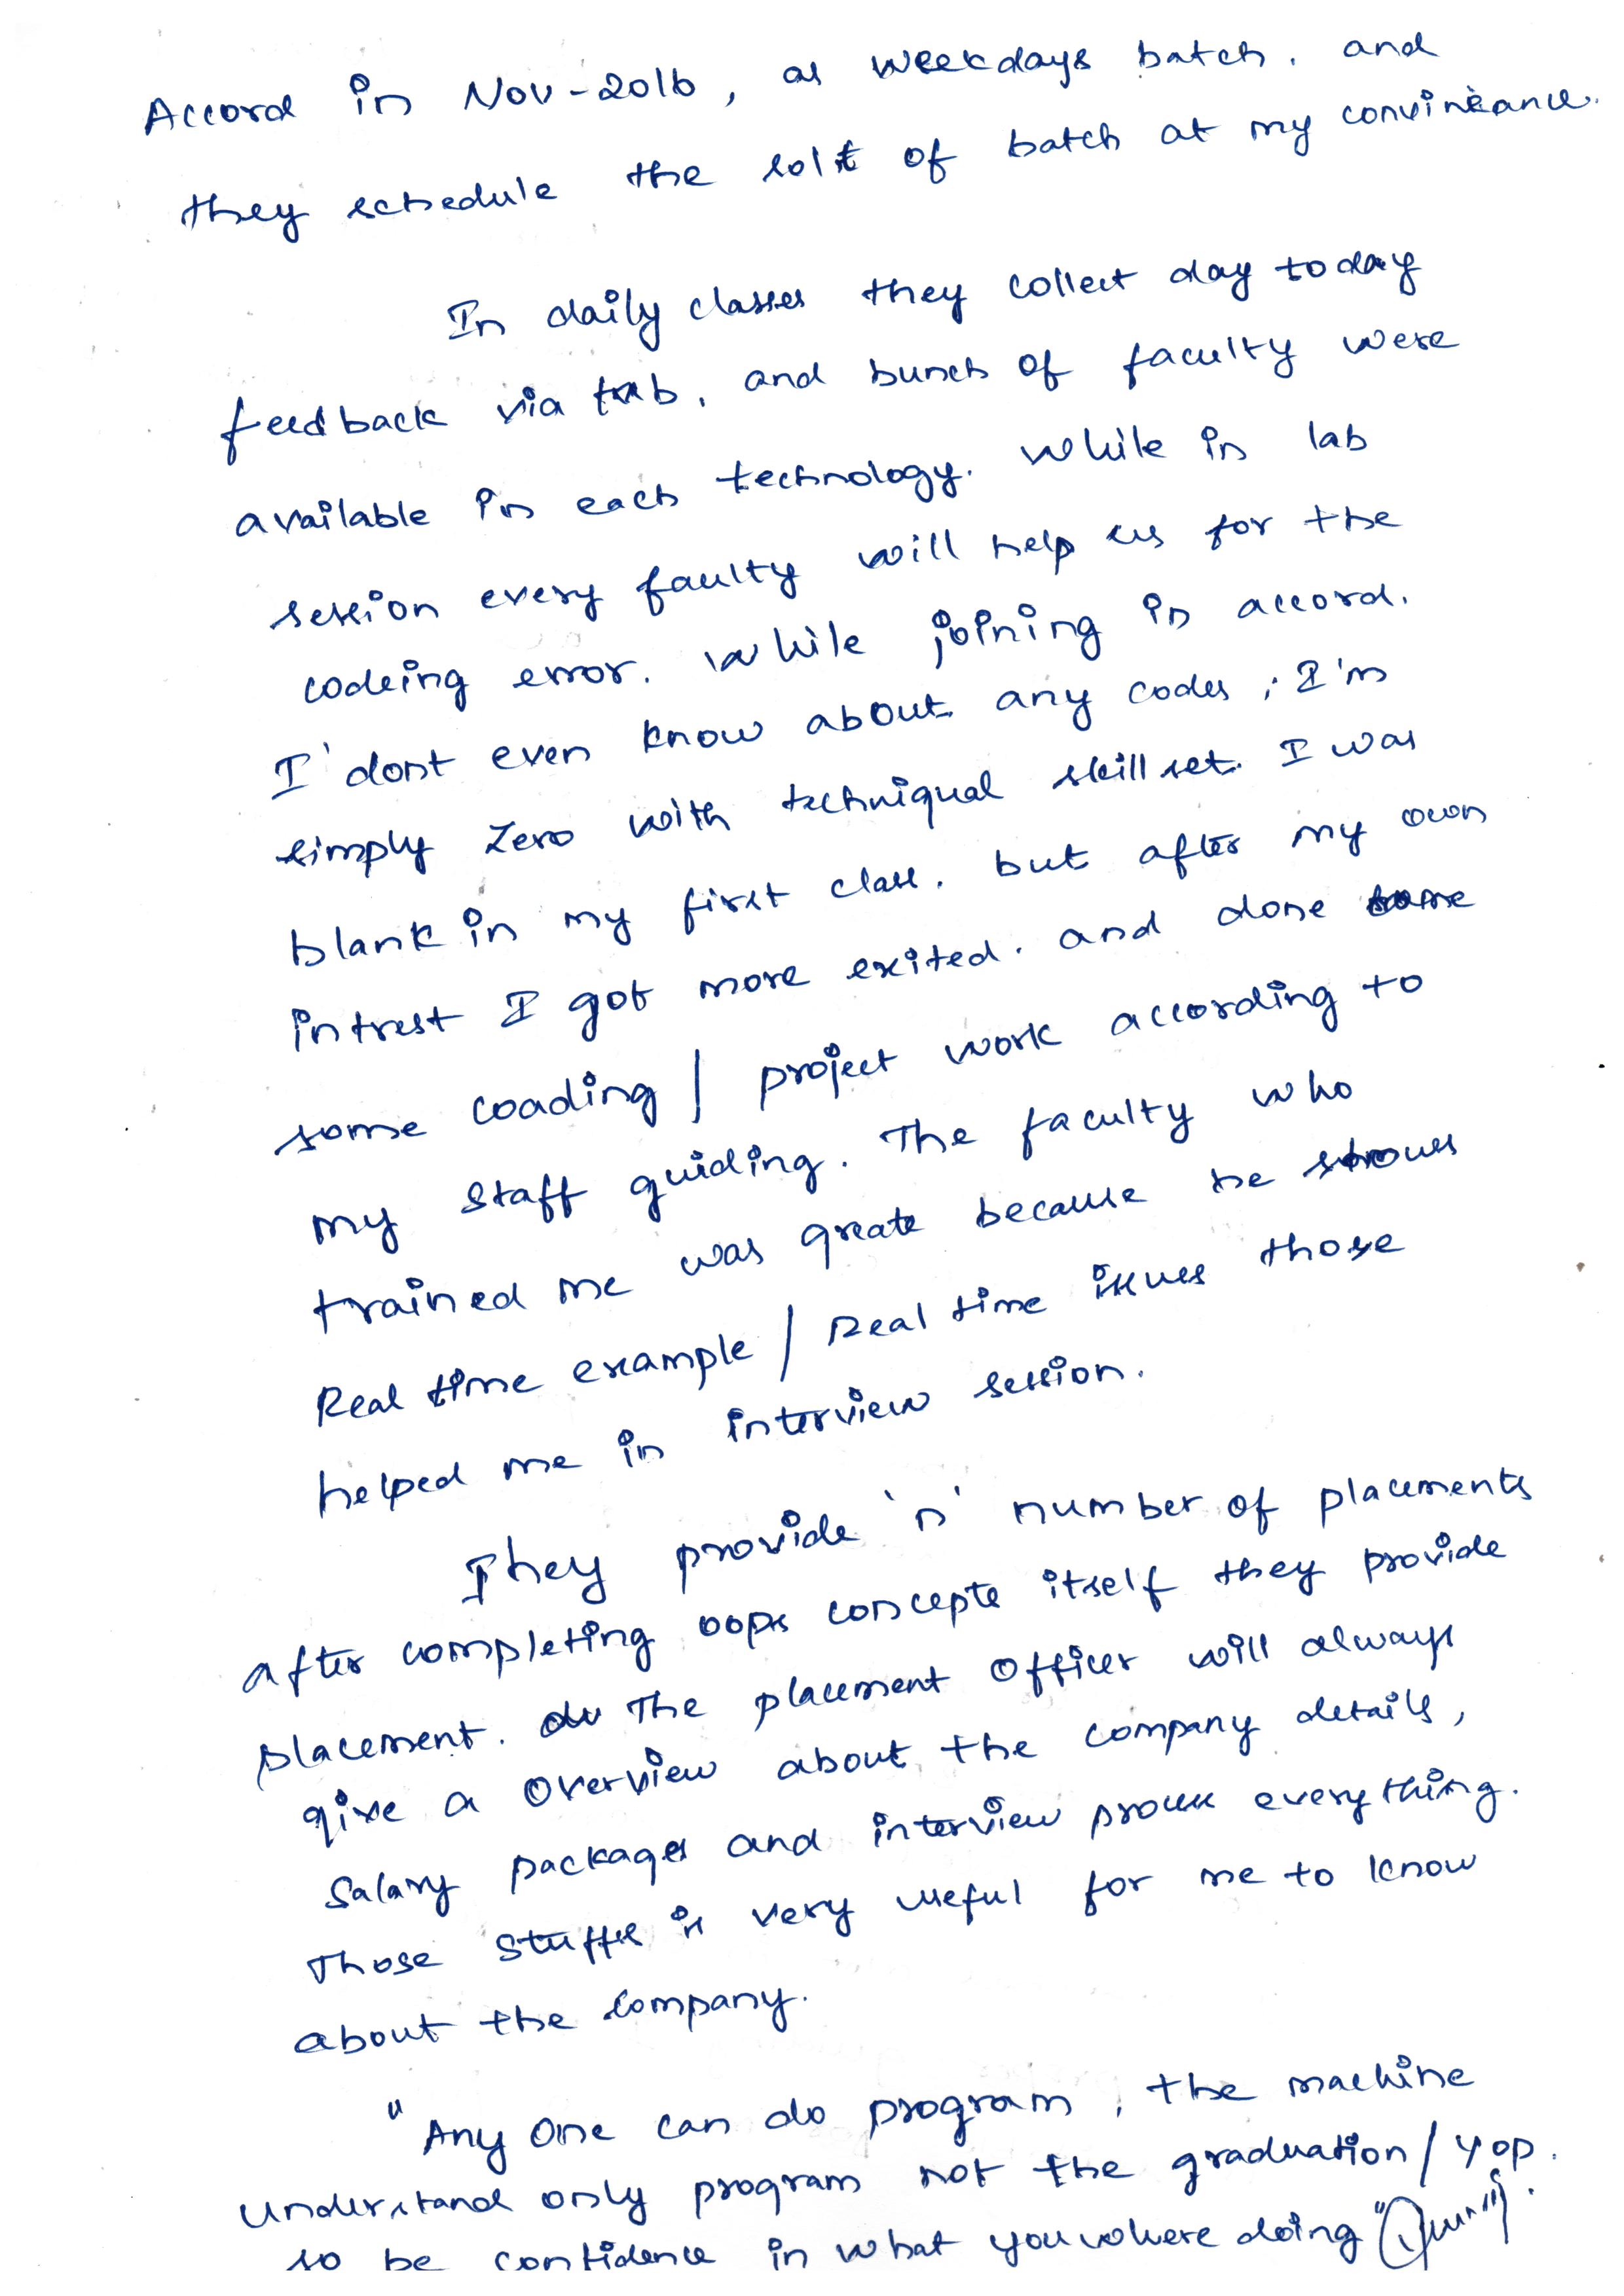 Accord in Nov-2016, as weekdays batch. and
they schedule the solt of batch at my convineance.
In daily classes they collect day today
feedback via tab, and bunch of faculty were
available in each technology. While in lab
session every faulty will help us for the
codeing error. While joining in accord.
I'dont even know about any codes, I'm
simply Zero with techniqual skill set. I was
blank in my first class. but after my own
intrest I got more exited. and done some
some coading / project work according to
my staff guiding. The faculty who
trained me was greate because he shows
Real time example / Real time issues those
helped me in interview session.
They provide 'n' number of placements
after completing oops concepts itself they provide
placement. The placement Officer will always
give a Overview about the company details,
Salary packages and interview process everything.
Those stuffs is very useful for me to know
about the company.
"Any One can do program, the machine
understand only program not the graduation / yop.
so be confidence in what you where doing"